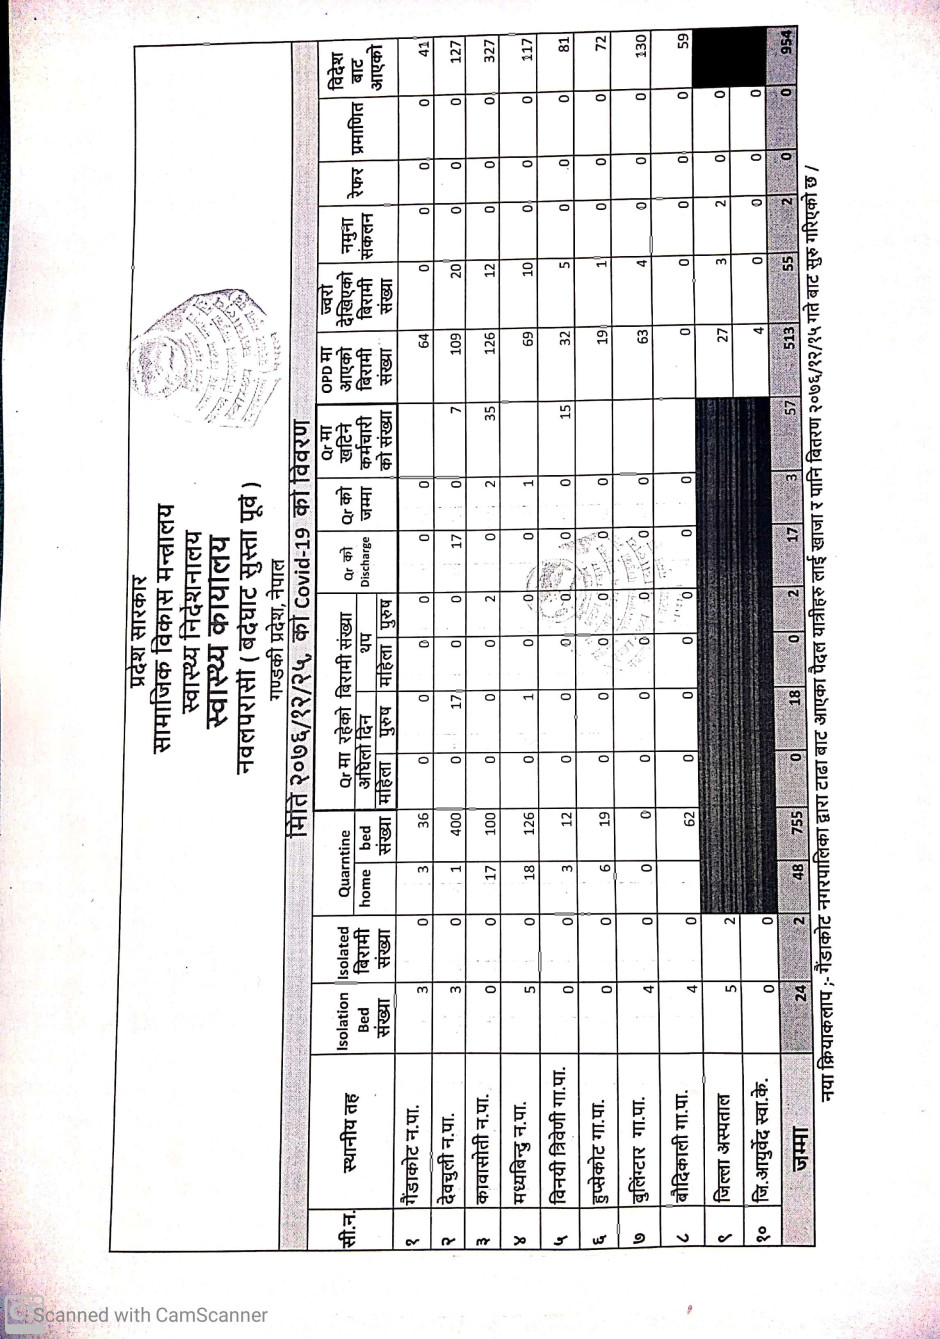 प्रदेश सरकार
सामाजिक विकास मन्त्रालय
स्वास्थ्य निर्देशनालय
स्वास्थ्य कार्यालय
नवलपरासी ( बर्दघाट सुस्ता पूर्व )
गण्डकी प्रदेश, नेपाल
मिति २०७६/१२/२५, को Covid-19 को विवरण
सी.न. स्थानीय तह Isolation Bed संख्या Isolated बिरामी संख्या Quarntine home bed संख्या Qr मा रहेको बिरामी संख्या अघिलो दिन महिला पुरुष थप महिला पुरुष Qr को Discharge Qr को जम्मा Qr मा खटिने कर्मचारी को संख्या OPD मा आएको बिरामी संख्या ज्वरो देखिएको बिरामी संख्या नमुना संकलन रेफर प्रमाणित विदेश बाट आएको
१ गैंडाकोट न.पा. 3 0 3 36 0 0 0 0 0 0 64 0 0 0 0 41
२ देवचुली न.पा. 3 0 1 400 0 17 0 0 17 0 7 109 20 0 0 0 127
३ कावासोती न.पा. 0 0 17 100 0 0 0 2 0 2 35 126 12 0 0 0 327
४ मध्यबिन्दु न.पा. 5 0 18 126 0 1 0 0 0 1 69 10 0 0 0 117
५ विनयी त्रिवेणी गा.पा. 0 0 3 12 0 0 0 0 0 0 15 32 5 0 0 0 81
६ हुप्सेकोट गा.पा. 0 0 6 19 0 0 0 0 0 0 19 1 0 0 0 72
७ बुलिंग्टार गा.पा. 4 0 0 0 0 0 0 0 0 0 63 4 0 0 0 130
८ बौदिकाली गा.पा. 4 0 62 0 0 0 0 0 0 0 0 0 0 0 59
९ जिल्ला अस्पताल 5 2 27 3 2 0 0
१० जि.आयुर्वेद स्वा.के. 0 0 4 0 0 0 0
जम्मा 24 2 48 755 0 18 0 2 17 3 57 513 55 2 0 0 954
नया क्रियाकलाप ;- गैंडाकोट नगरपालिका द्वारा टाढा बाट आएका पैदल यात्रीहरु लाई खाजा र पानि बितरण २०७६/१२/१५ गते बाट सुरु गरिएको छ /
Scanned with CamScanner